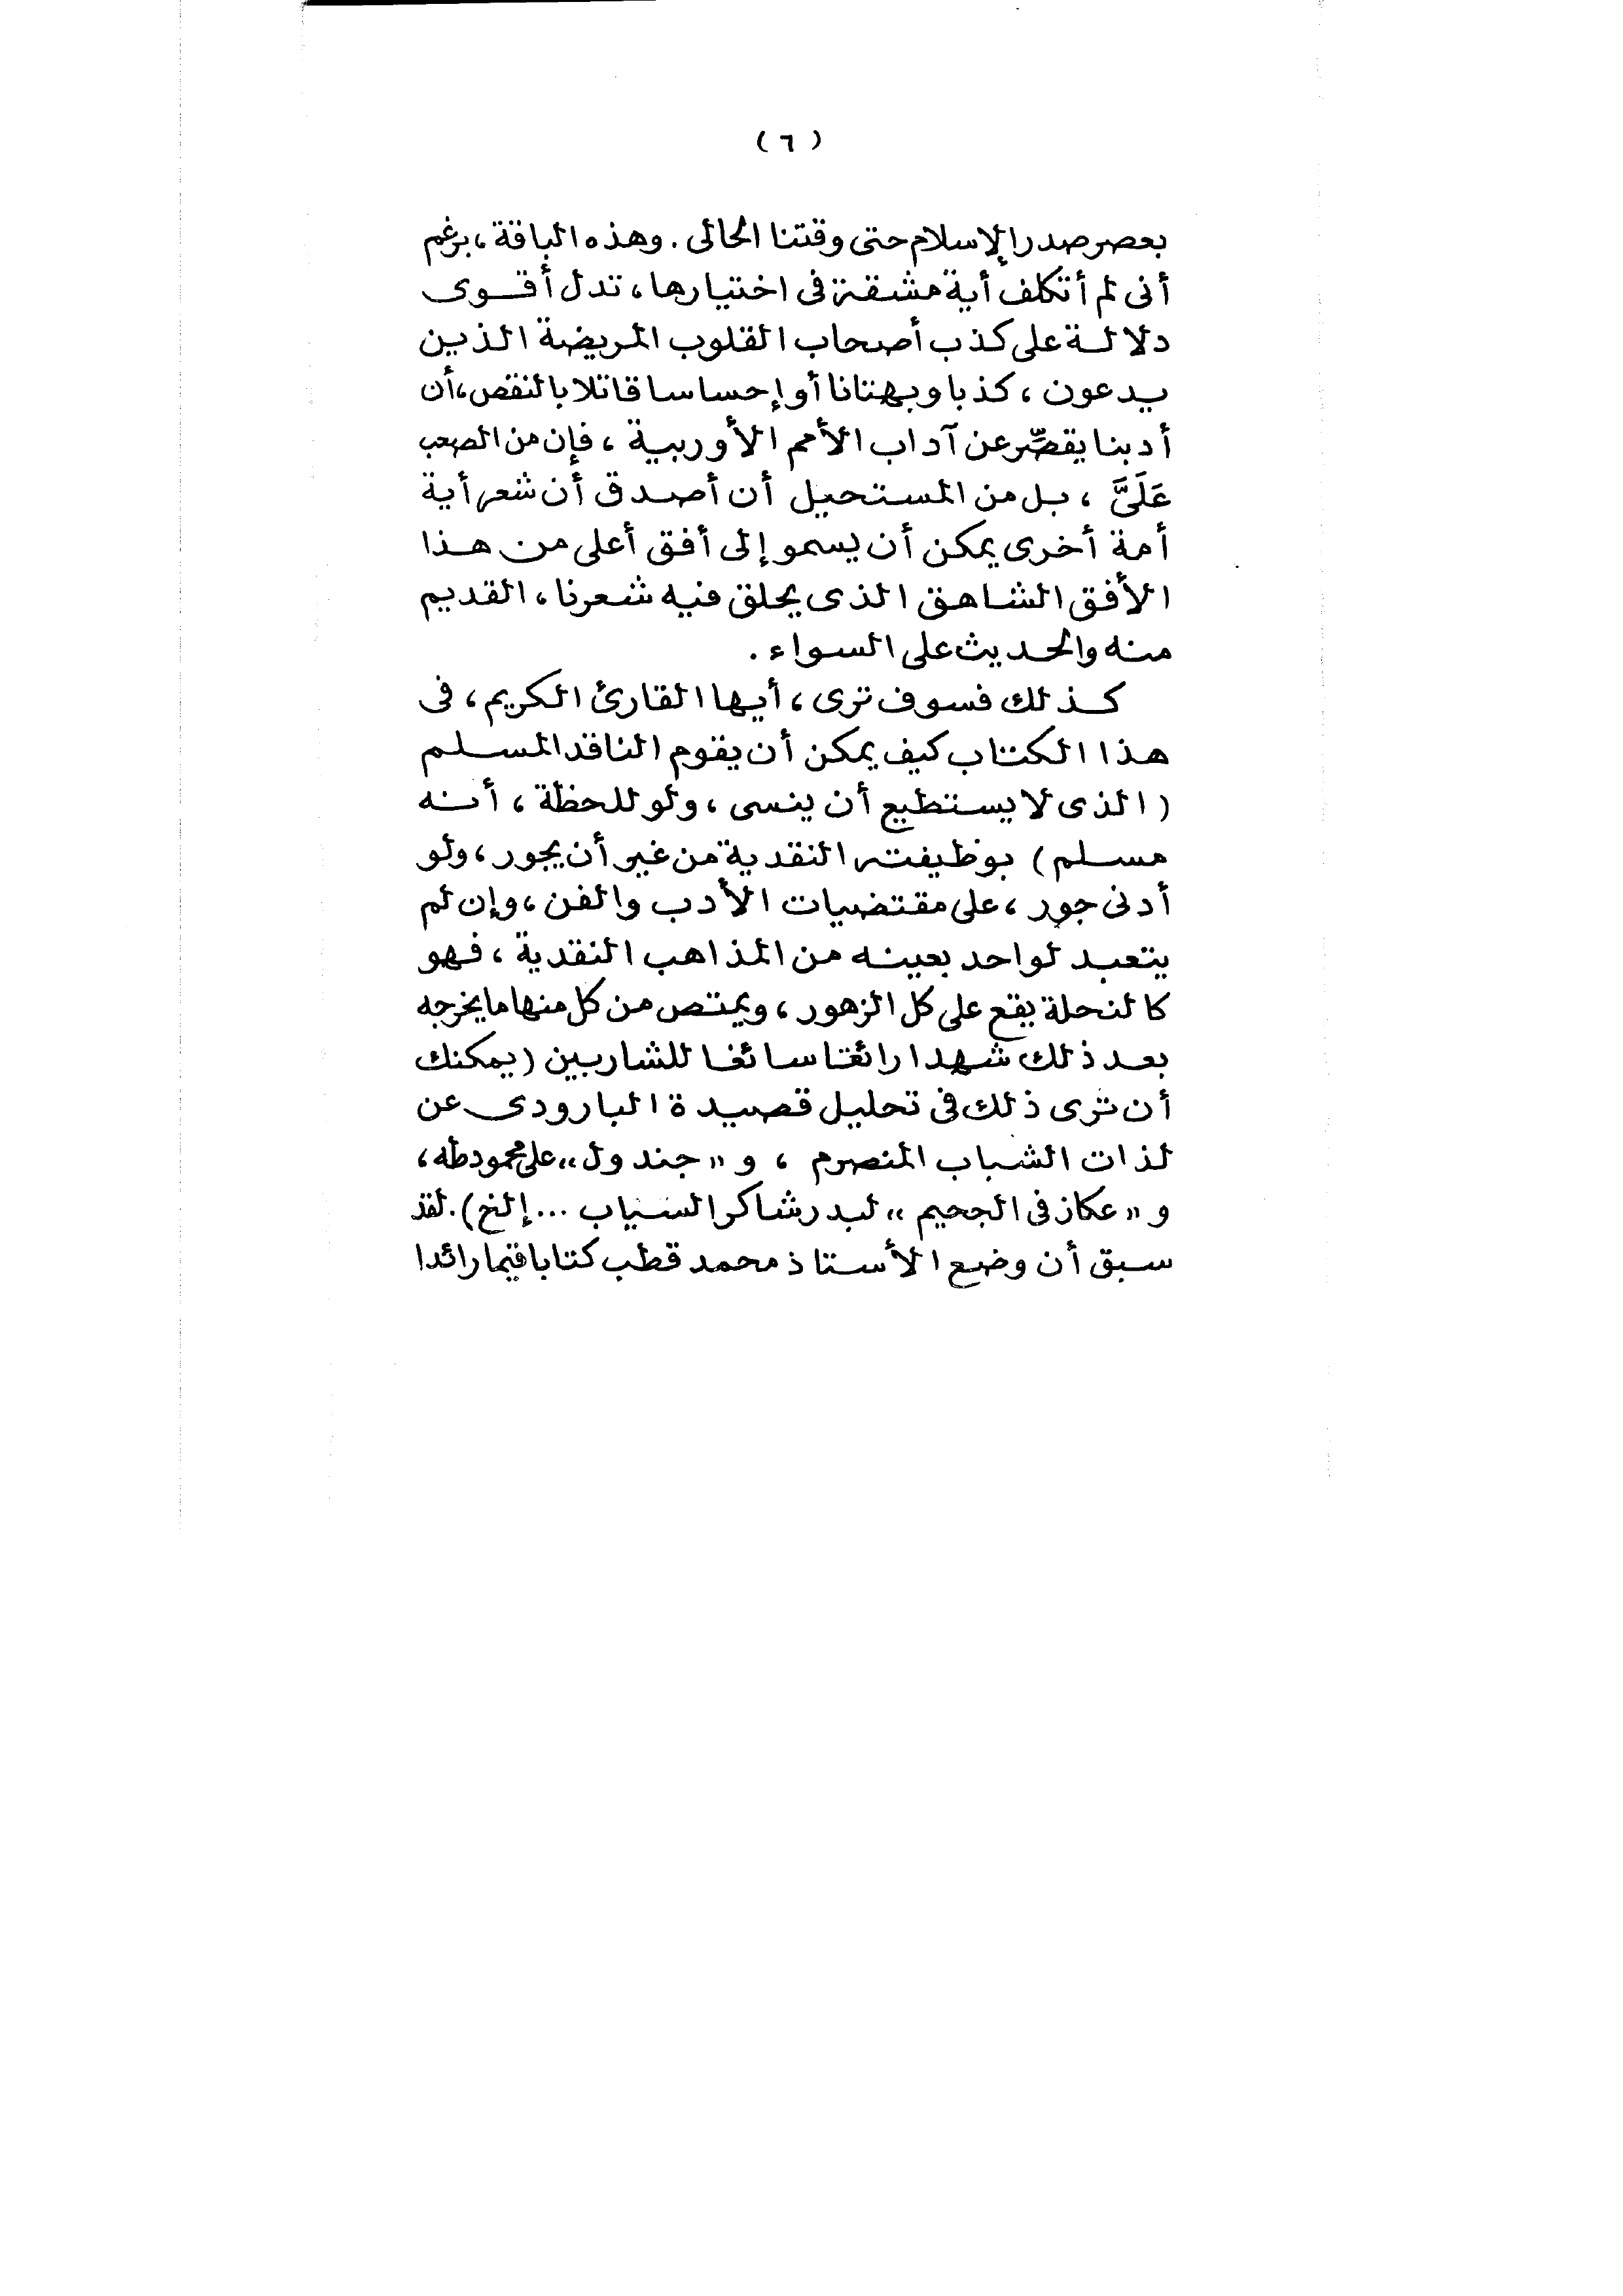 ( ٦ )
بعصر صدر الإسلام حتى وقتنا الحالى . وهذه الباقة ، برغم
أنى لم أتكلف أية مشقة فى اختيارها ، تدل أقوى
دلالة على كذب أصحاب القلوب المريضة الذين
يدعون ، كذبا وبهتانا أو إحساسا قاتلا بالنقص ، أن
أدبنا يقصِّر عن آداب الأمم الأوربية ، فإن من الصعب
عَلَىَّ ، بل من المستحيل أن أصدق أن شعر أية
أمة أخرى يمكن أن يسمو إلى أفق أعلى من هذا
الأفق الشاهق الذى يحلق فيه شعرنا ، القديم
منه والحديث على السواء .
كذلك فسوف ترى ، أيها القارئ الكريم ، فى
هذا الكتاب كيف يمكن أن يقوم الناقد المسلم
( الذى لا يستطيع أن ينسى ، ولو للحظة ، أنه
مسلم ) بوظيفته النقدية من غير أن يجور ، ولو
أدنى جور ، على مقتضيات الأدب والفن ، وإن لم
يتعبد لواحد بعينه من المذاهب النقدية ، فهو
كالنحلة يقع على كل الزهور ، ويمتص من كل منها ما يخرجه
بعد ذلك شهدا رائقا سائغا للشاربين ( يمكنك
أن ترى ذلك فى تحليل قصيدة البارودى عن
لذات الشباب المنصرم ، و « جندول » على محمود طه ،
و « عكاز فى الجحيم » لبدر شاكر السياب ... إلخ ) . لقد
سبق أن وضع الأستاذ محمد قطب كتابا قيما رائدا